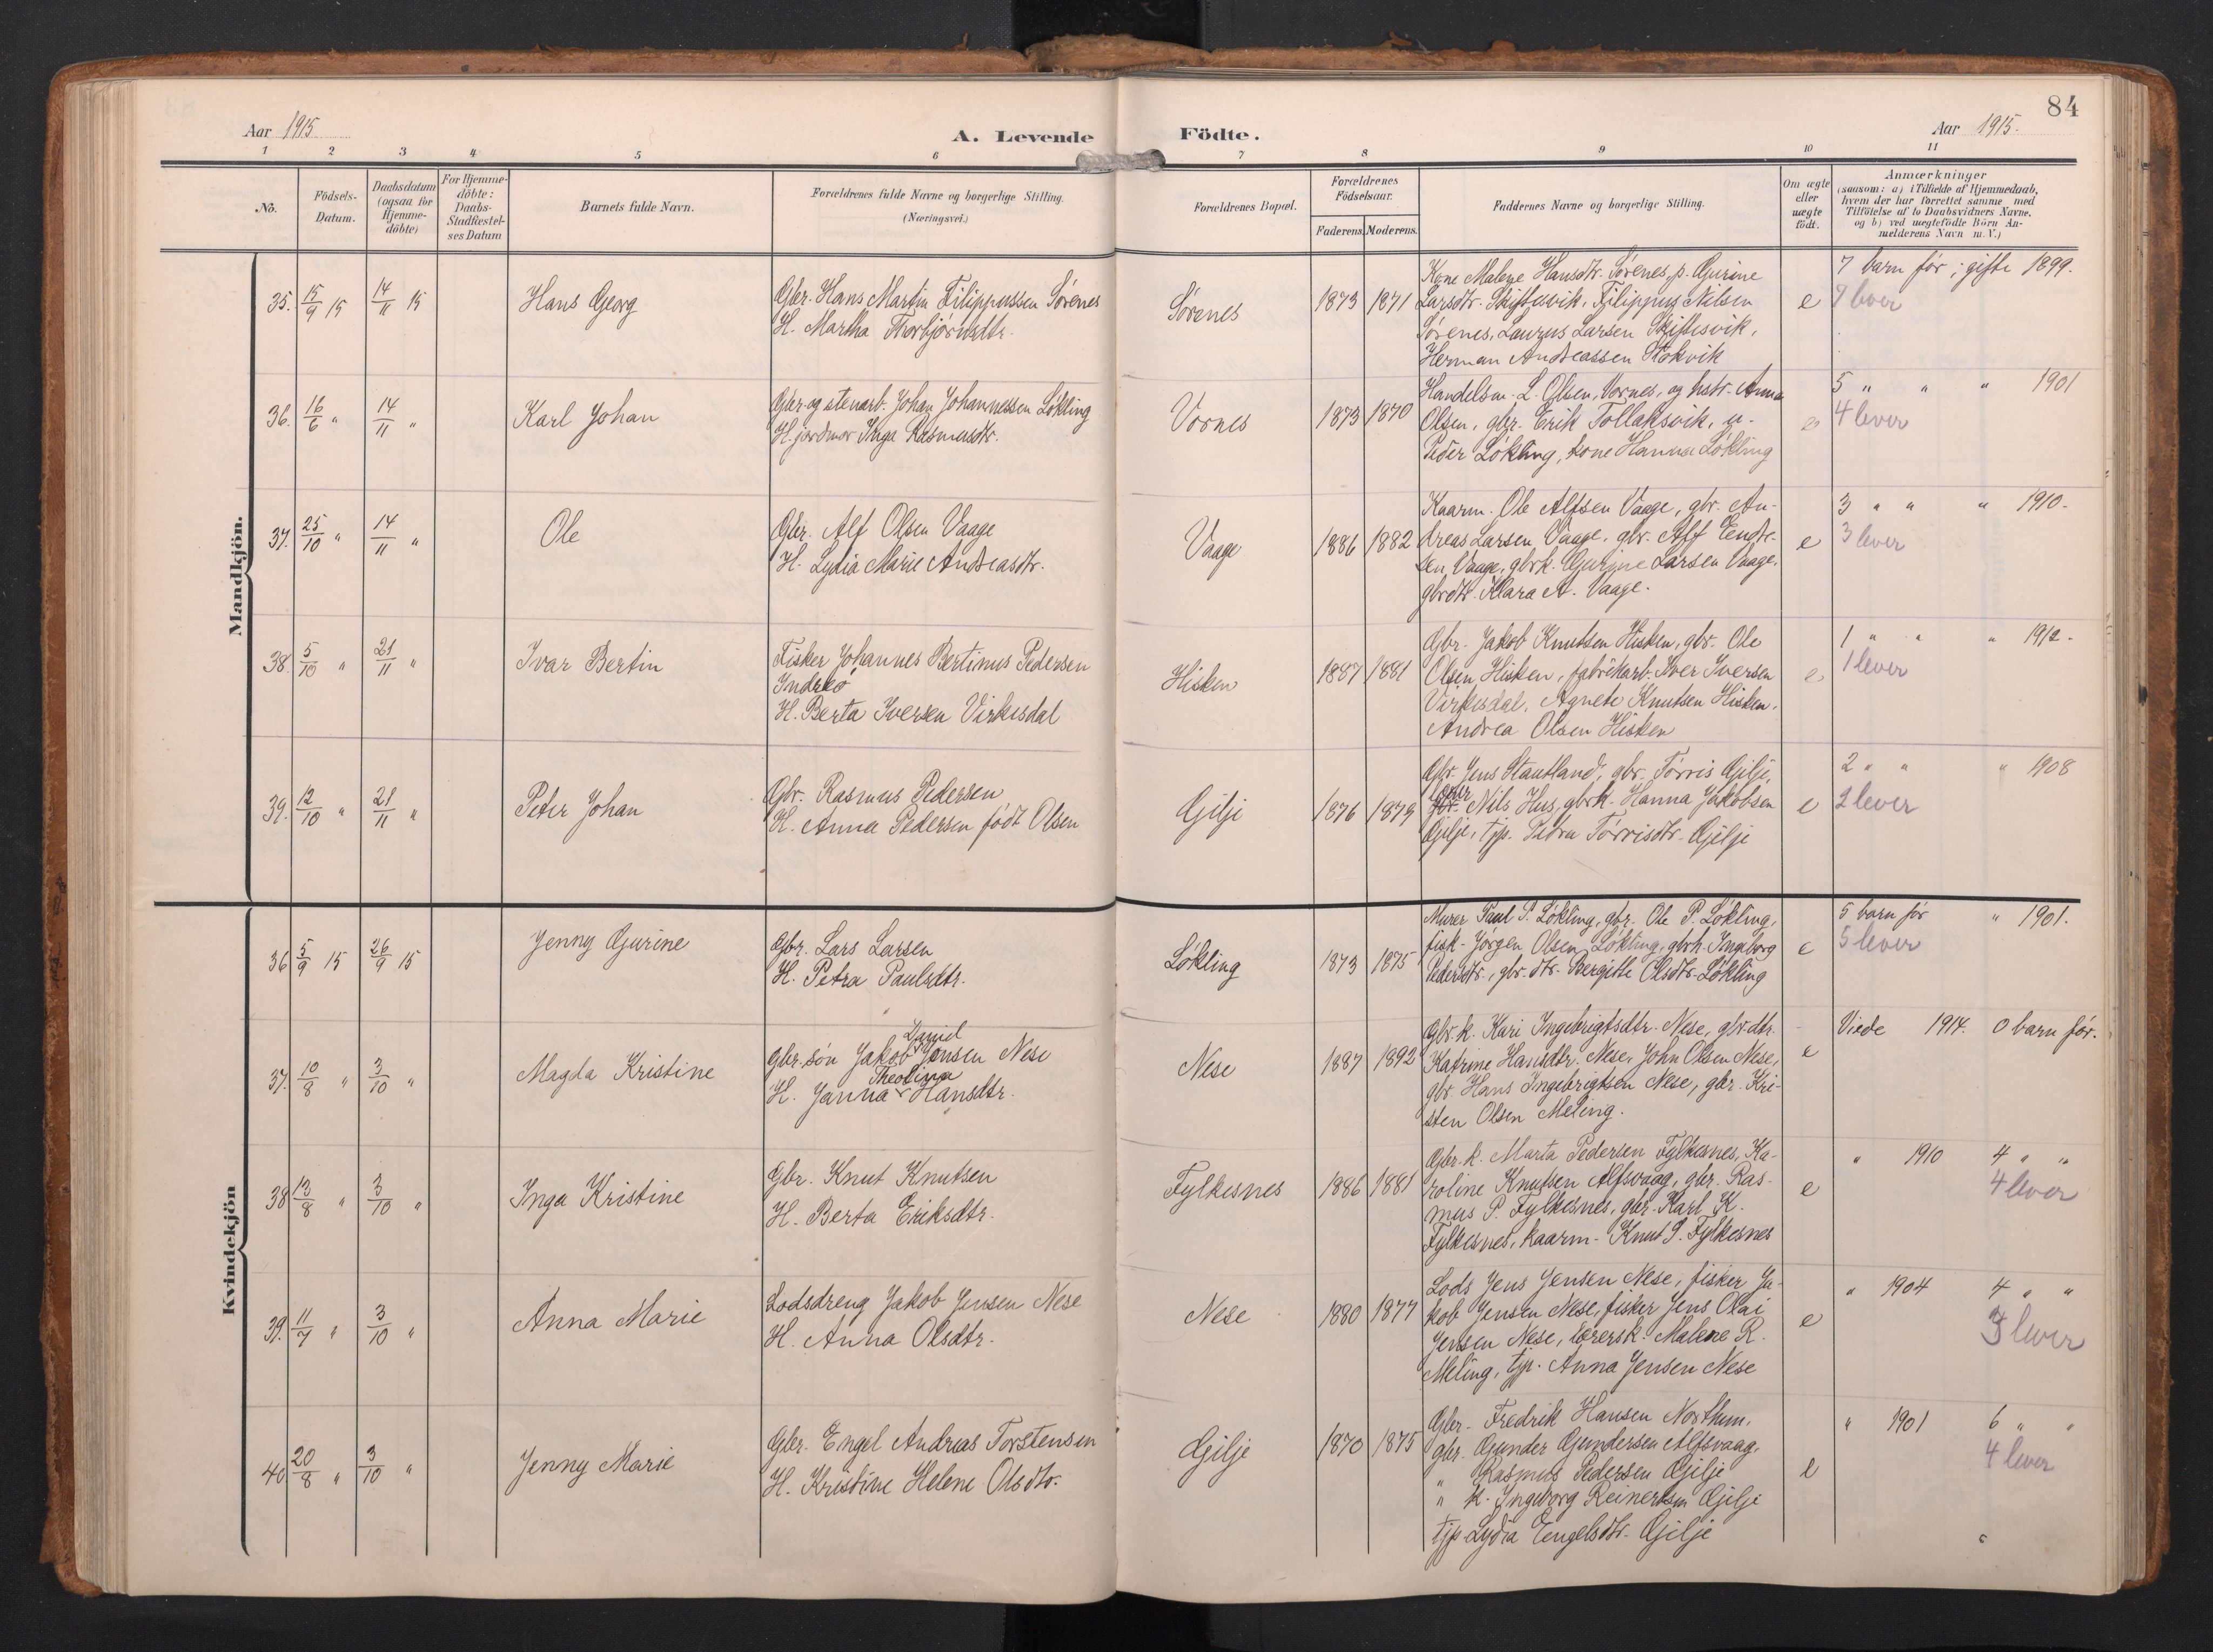 84
Aar 1915
A. Levende Födte.
Aar 1915.
1 2 3 4 5 6 7 8 9 10 11
No.
Födsels-
Datum.
Daabsdatum
(ogsaa for
Hjemme-
döbte)
For Hjemme-
döbte:
Daabs-
Stadfæstel-
ses Datum
Barnets fulde Navn.
Forældrenes fulde Navne og borgerlige Stilling.
(Næringsvei.)
Forældrenes Bopæl.
Forældrenes
Födselsaar.
Faderens. Moderens.
Faddernes Navne og borgerlige Stilling.
Om ægte
eller
uægte
födt.
Anmærkninger
(saasom: a) i Tilfælde af Hjemmedaab,
hvem der har forrettet samme med
Tilföielse af to Daabsvidners Navne,
og b) ved uægtefödte Börn An-
melderens Navn m. V.)
Mandkjön.
35. 15/9 15 14/11 15
Hans Georg
Gbr. Hans Martin Filippussen Sørenes
H. Martha Thorbjørnsdtr.
Sørenes
1873 1871
Kone Malene Hansdtr. Sørenes, p. Gurine
Larsdtr. Skiftesvik, Filippus Nilsen
Sørenes, Laurus Larsen Skiftesvik,
Herman Andreassen Stokvik
e
7 barn før; gifte 1899.
lever
36. 16/6 " 14/11 "
Karl Johan
Gbr. og stenarb. Johan Johannessen Løkling
H. jordmor Inga Rasmusdtr.
Vornes
1873 1870
Handelsm. L. Olsen, Vornes, og hstr. Anna
Olsen, gbr. Erik Tollaksvik, u-
Peder Løkling, kone Hanna Løkling
e
5 " " " 1901
4 lever
37. 25/10 " 14/11 "
Ole
Gbr. Alf Olsen Vaage
H. Lydia Marie Andreasdtr.
Vaage
1886 1882
Kaarm. Ole Alfsen Vaage, gbr. An-
dreas Larsen Vaage, gbr. Alf Endre-
sen Vaage, gbrk. Gurine Larsen Vaage,
gbrdtr. Klara A. Vaage.
e
3 " " " 1910.
3 lever
38. 5/10 " 21/11 "
Ivar Bertin
Fisker Johannes Bertinus Pedersen
Indreø
H. Berta Iversen Virkesdal
Hisken
1887 1881
Gbr. Jakob Knutsen Hisken, gbr. Ole
Olsen Hisken, fabrikarb. Iver Iversen
Virkesdal, Agnete Knutsen Hisken,
Andrea Olsen Hisken
e
1 " " " 1912.
1 lever
39. 12/10 " 21/11 "
Peter Johan
Gbr. Rasmus Pedersen
H. Anna Pedersen født Olsen
Gilje
1876 1879
Gbr. Jens Stautland, gbr. Tørris Gilje,
Nils Hus, gbrk. Hanna Jakobsen
Gilje, tjp. Petra Tørrisdtr. Gilje
e
2 " " " 1908
2 lever
Kvindekjön
36 5/9 15 26/9 15
Jenny Gurine
Gbr. Lars Larsen
H. Petra Paulsdtr.
Løkling
1873 1875
Murer Paul P. Løkling, gbr. Ole P. Løkling,
fisk. Jørgen Olsen Løkling, gbrk. Ingeborg
Pedersdtr., gbr. dtr. Bergitte Olsdtr. Løkling
e
5 barn før " 1901.
5 lever
37. 10/8 " 3/10 "
Magda Kristine
David
gbr. søn Jakob Jensen Nese
Theolina
H. Janna Hansdtr.
Nese
1887 1892
Gbr. k. Kari Ingebrigtsdtr. Nese, gbr. dtr.
Katrine Hansdtr. Nese, John Olsen Nese,
gbr. Hans Ingebrigtsen Nese, gbr. Kri-
sten Olsen Meling.
e
Viede 1914. 0 barn før.
38 13/8 " 3/10 "
Inga Kristine
Gbr. Knut Knutsen
H. Berta Eriksdtr.
Fylkesnes
1886 1881
Gbr. k. Marta Pedersen Fylkesnes, Ka-
roline Knutsen Alfsvaag, gbr. Ras-
mus P. Fylkesnes, gbr. Karl K.
Fylkesnes, kaarm. Knut P. Fylkesnes
e
" 1910 4 " "
4 lever
39. 11/7 " 3/10 "
Anna Marie
Lodsdreng Jakob Jensen Nese
H. Anna Olsdtr.
Nese
1880 1877
Lods Jens Jensen Nese, fisker Ja-
kob Jensen Nese, fisker Jens Olai
Jensen Nese, lærersk. Malene R.
Meling, tjp. Anna Jensen Nese
e
" 1904 4 " "
3 lever
40 20/8 " 3/10 "
Jenny Marie
Gbr. Engel Andreas Torstensen
H. Kristine Helene Olsdtr.
Gilje
1870 1875
Gbr. Fredrik Hansen Northun,
gbr. Gunder Gundersen Alfsvaag,
" Rasmus Pedersen Gilje
" k. Ingeborg Reinertsen Gilje
tjp Lydia Engelsdtr. Gilje
e
" 1901 6 " "
4 lever